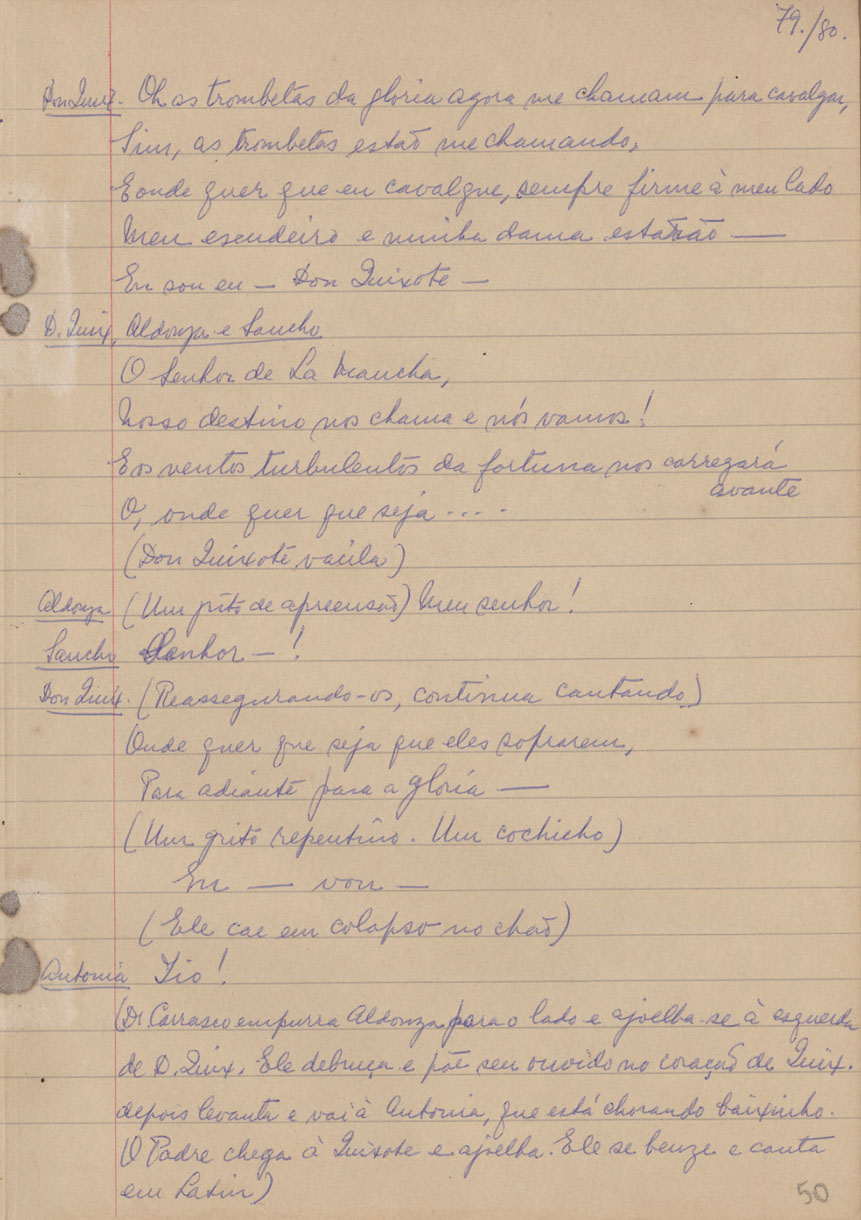 79./80.
Don Quix. Oh as trombetas da gloria agora me chamam para cavalgar,
Sim, as trombetas estaõ me chamando,
E onde quer que eu cavalgue, sempre firme à meu lado
Meu escudeiro e minha dama estarão —
Eu sou eu — Don Quixote —
D. Quix, Aldonza e Sancho
O Senhor de La Mancha,
Nosso destino nos chama e nós vamos!
E os ventos turbulentos da fortuna nos carregará
avante
O, onde quer que seja ....
(Don Quixote vacila)
Aldonza (Um grito de apreensaõ) Meu senhor!
Sancho Senhor — !
Don Quix. (Reassegurando-os, continua cantando)
Onde quer que seja que eles soprarem,
Para adiante para a gloria —
(Um grito repentino. Um cochicho)
Eu — vou —
(Ele cae em colapso no chaõ)
Antonia Tio!
(Dr Carrasco empurra Aldonza para o lado e ajoelha-se à esquerda
de D. Quix. Ele debruça e põe seu ouvido no coraçaõ de Quix.
depois levanta e vai à Antonia, que está chorando baixinho.
(O Padre chega à Quixote e ajoelha. Ele se benze e canta
em Latin)
50